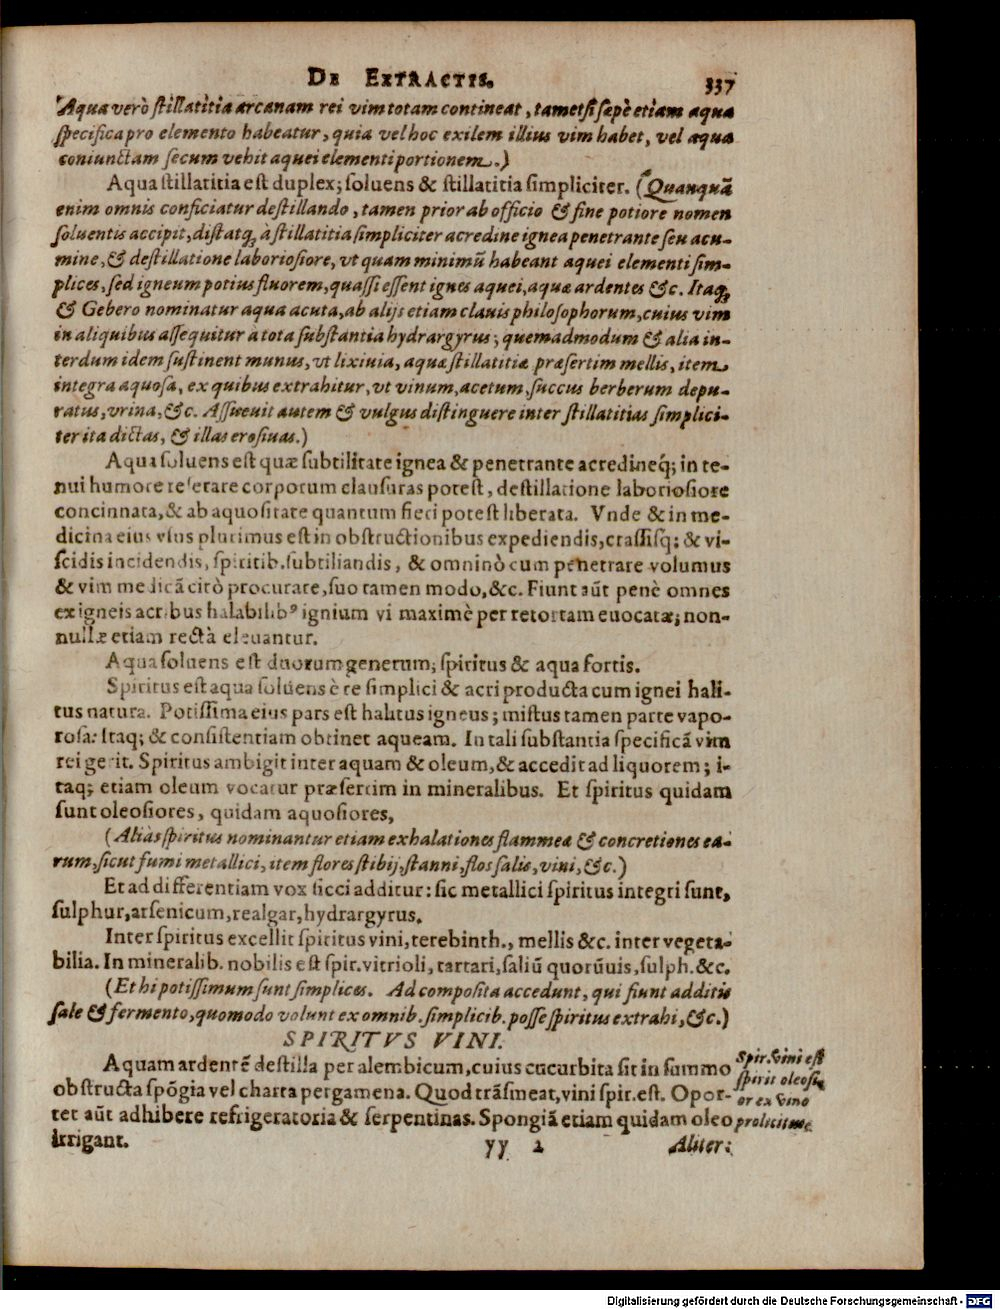 DE EXTRACTIS. 337
Aqua verò stillatitia arcanam rei vim totam contineat, tametsi sæpè etiam aqua
specifica pro elemento habeatur, quia vel hoc exilem illius vim habet, vel aqua
coniunctam secum vehit aquei elementi portionem.)
Aqua stillatitia est duplex; soluens & stillatitia simpliciter. (Quanquā
enim omnis conficiatur destillando, tamen prior ab officio & fine potiore nomen
soluentis accipit, distatq; à stillatitia simpliciter acredine ignea penetrante seu acu-
mine, & destillatione laboriosiore, vt quam minimū habeant aquei elementi sim-
plices, sed igneum potius fluorem, quasi essent ignes aquei, aquæ ardentes &c. Itaq;
& Gebero nominatur aqua acuta, ab alijs etiam clauis philosophorum, cuius vim
in aliquibus assequitur à tota substantia hydrargyrus; quemadmodum & alia in-
terdum idem sustinent munus, vt lixiuia, aquæ stillatitiæ præsertim mellis, item
integra aquosa, ex quibus extrahitur, vt vinum, acetum, succus berberum depu-
ratus, vrina, &c. Assueuit autem & vulgus distinguere inter stillatitias simplici-
ter ita dictas, & illas erosiuas.)
Aqua soluens est quæ subtilitate ignea & penetrante acredineq́; in te-
nui humore reserare corporum clausuras potest, destillatione laboriosiore
concinnata, & ab aquositate quantum fieri potest liberata. Vnde & in me-
dicina eius vsus plurimus est in obstructionibus expediendis, crassisq; & vi-
scidis incidendis, spiritib. subtiliandis, & omninò cum penetrare volumus
& vim medicā citò procurare, suo tamen modo, &c. Fiunt aūt penè omnes
ex igneis acribus halabilibꝰ ignium vi maximè per retortam euocatæ; non-
nullæ etiam rectà eleuantur.
Aqua soluens est duorum generum; spiritus & aqua fortis.
Spiritus est aqua soluens è re simplici & acri producta cum ignei hali-
tus natura. Potissima eius pars est halitus igneus; mistus tamen parte vapo-
rosa: Itaq; & consistentiam obtinet aqueam. In tali substantia specificā vim
rei gerit. Spiritus ambigit inter aquam & oleum, & accedit ad liquorem; i-
taq; etiam oleum vocatur præsertim in mineralibus. Et spiritus quidam
sunt oleosiores, quidam aquosiores,
(Aliàs spiritus nominantur etiam exhalationes flammea & concretiones ea-
rum, sicut fumi metallici, item flores stibij, stanni, flos salis, vini, &c.)
Et ad differentiam vox sicci additur: sic metallici spiritus integri sunt,
sulphur, arsenicum, realgar, hydrargyrus.
Inter spiritus excellit spiritus vini, terebinth., mellis &c. inter vegeta-
bilia. In mineralib. nobilis est spir. vitrioli, tartari, saliū quorūuis, sulph. &c.
(Et hi potissimum sunt simplices. Ad composita accedunt, qui fiunt additis
sale & fermento, quomodo volunt ex omnib. simplicib. posse spiritus extrahi, &c.)
SPIRITVS VINI.
Aquam ardentē destilla per alembicum, cuius cucurbita sit in summo
obstructa spōgia vel charta pergamena. Quod trāsmeat, vini spir. est. Opor-
tet aūt adhibere refrigeratoria & serpentinas. Spongiā etiam quidam oleo
irrigant.
Spir. vini est
spirit oleosi
or ex vino
prolicitus
yy 2 Aliter:
Digitalisierung gefördert durch die Deutsche Forschungsgemeinschaft - DFG